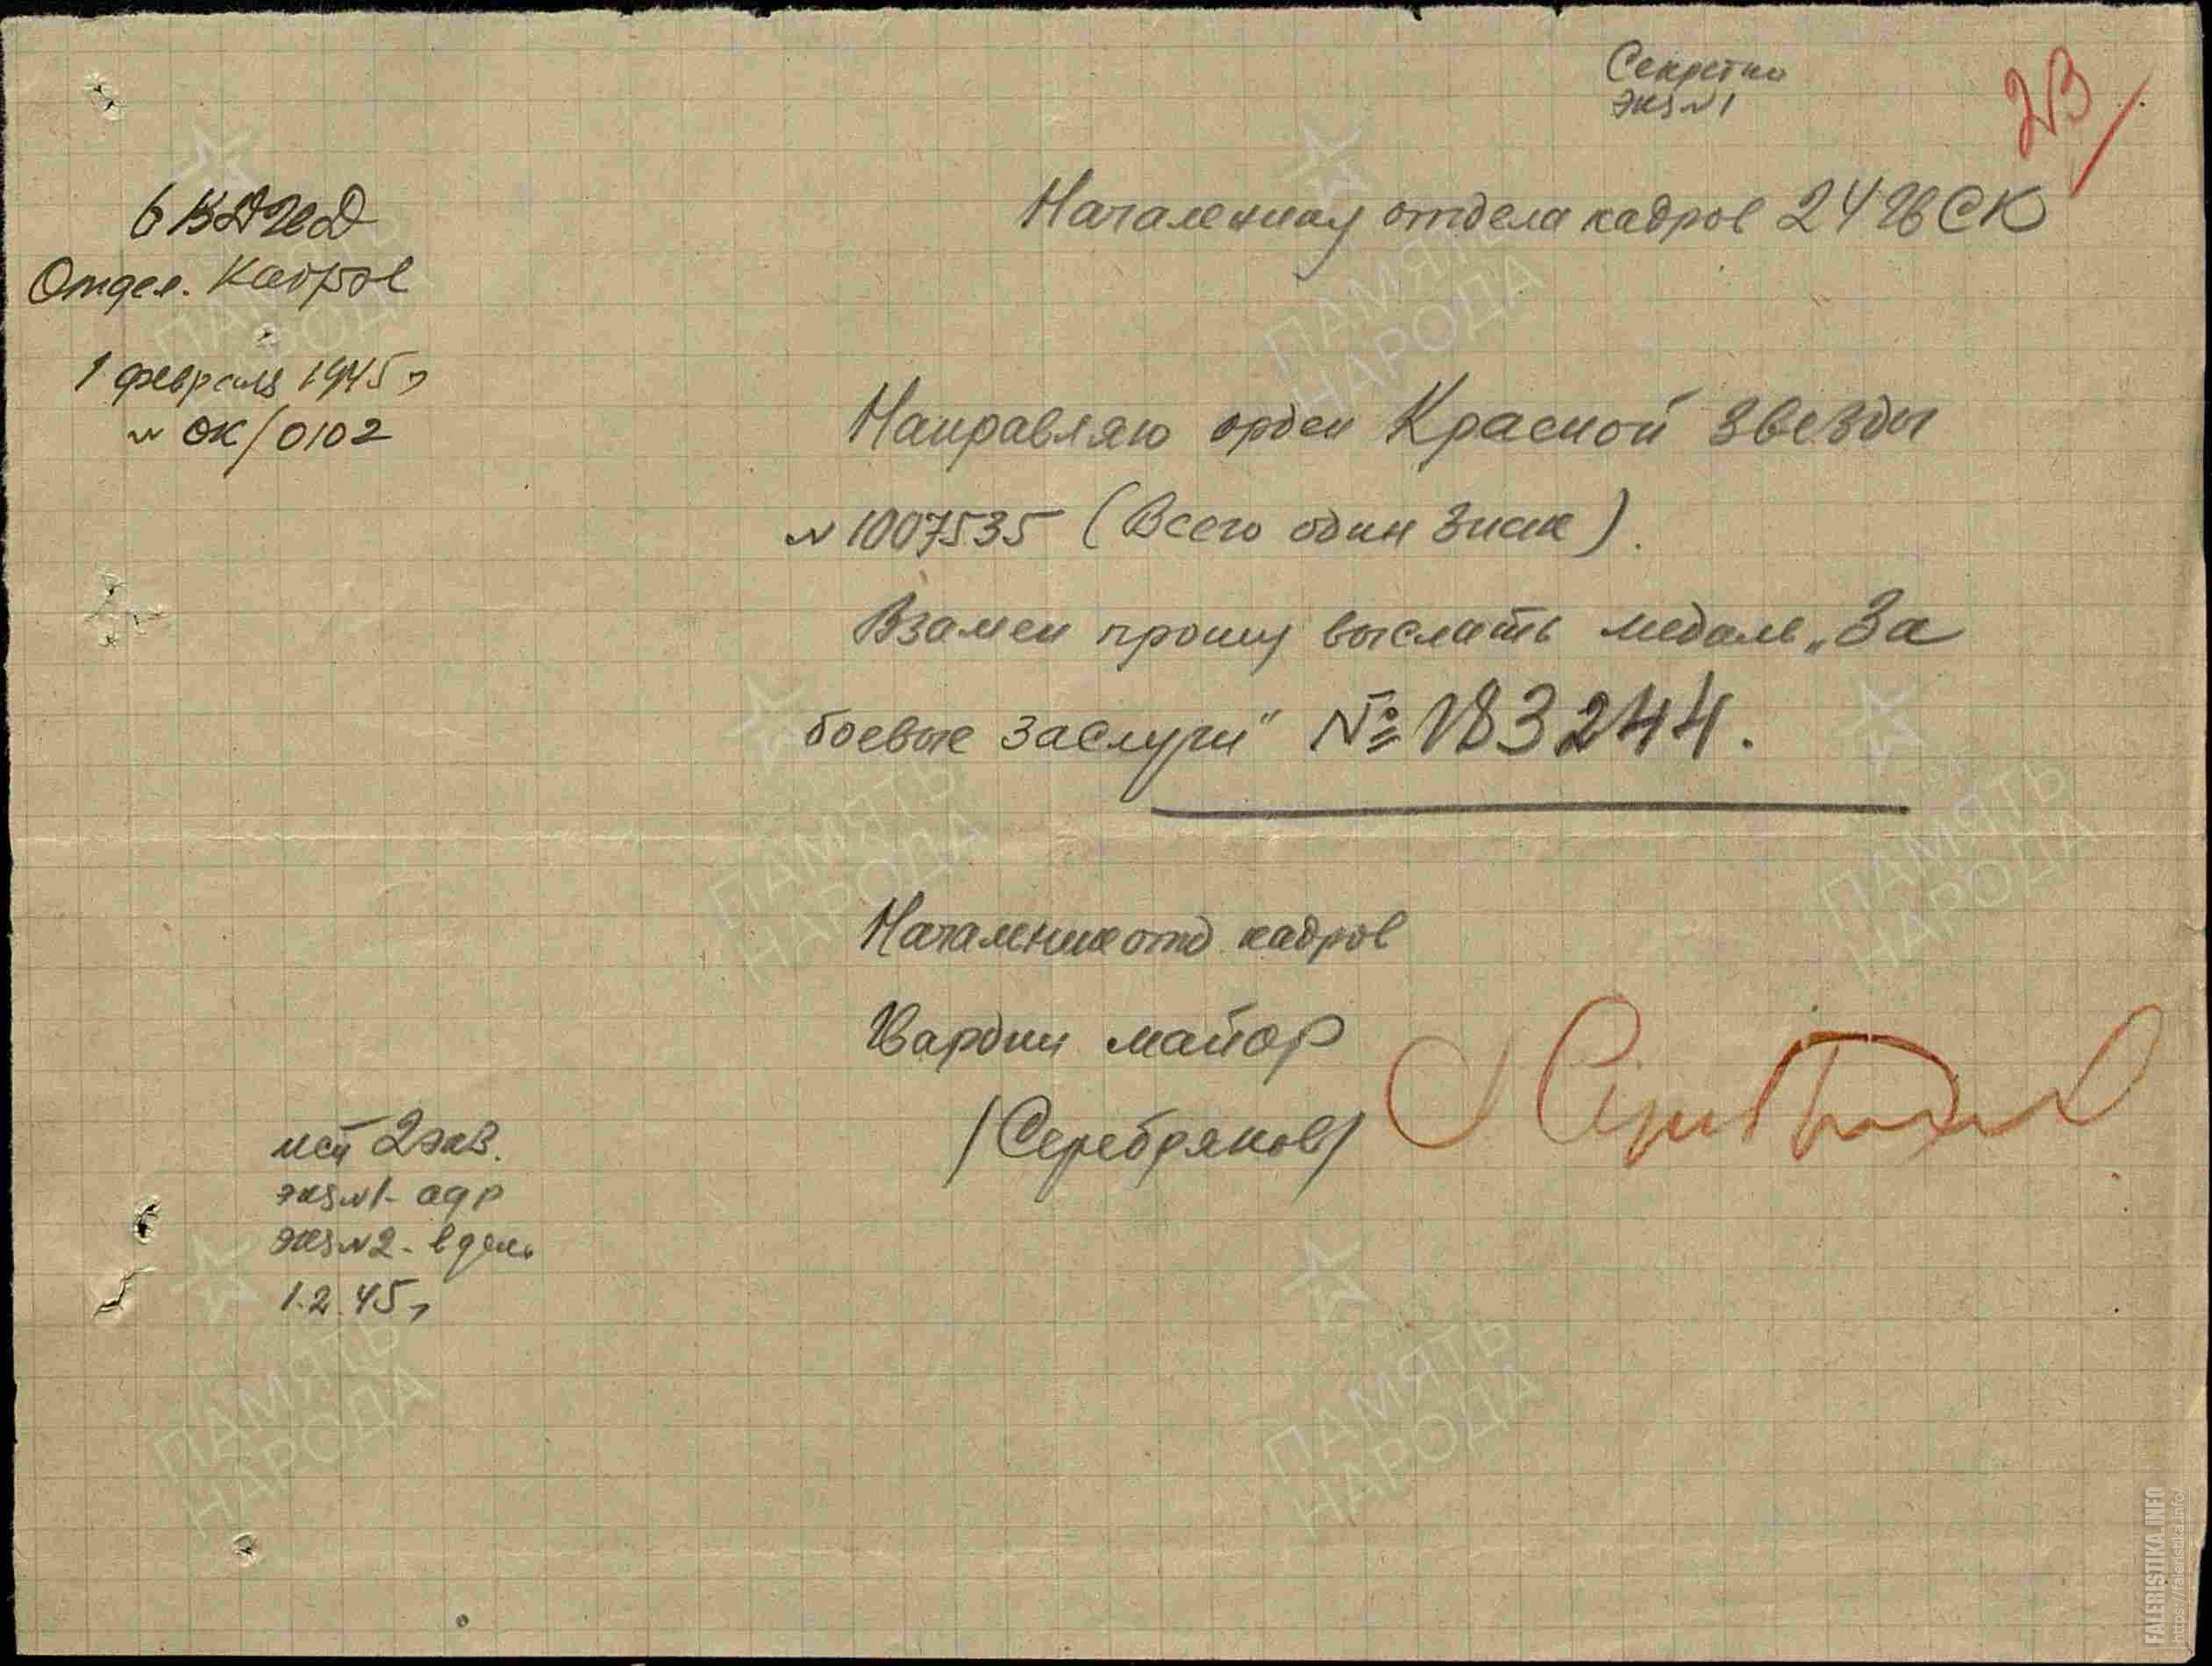 Секретно
Экз № 1
23
6 ВДГвД
Отдел. Кадров
1 февраля 1945 г
№ ОК/0102
Начальнику отдела кадров 24 Гв СК
Направляю орден Красной Звезды
№ 1007535 (Всего один знак).
Взамен прошу выслать медаль „За
боевые заслуги" № 183244.
Начальник отд кадров
Гвардии майор
/Серебряков/
исп 2 экз.
экз № 1 - адр
экз № 2 - в дело
1.2.45 г
ПАМЯТЬ
НАРОДА
ПАМЯТЬ
НАРОДА
ПАМЯТЬ
НАРОДА
ПАМЯТЬ
НАРОДА
ПАМЯТЬ
НАРОДА
ПАМЯТЬ
НАРОДА
FALERISTIKA.INFO
https://faleristika.info/